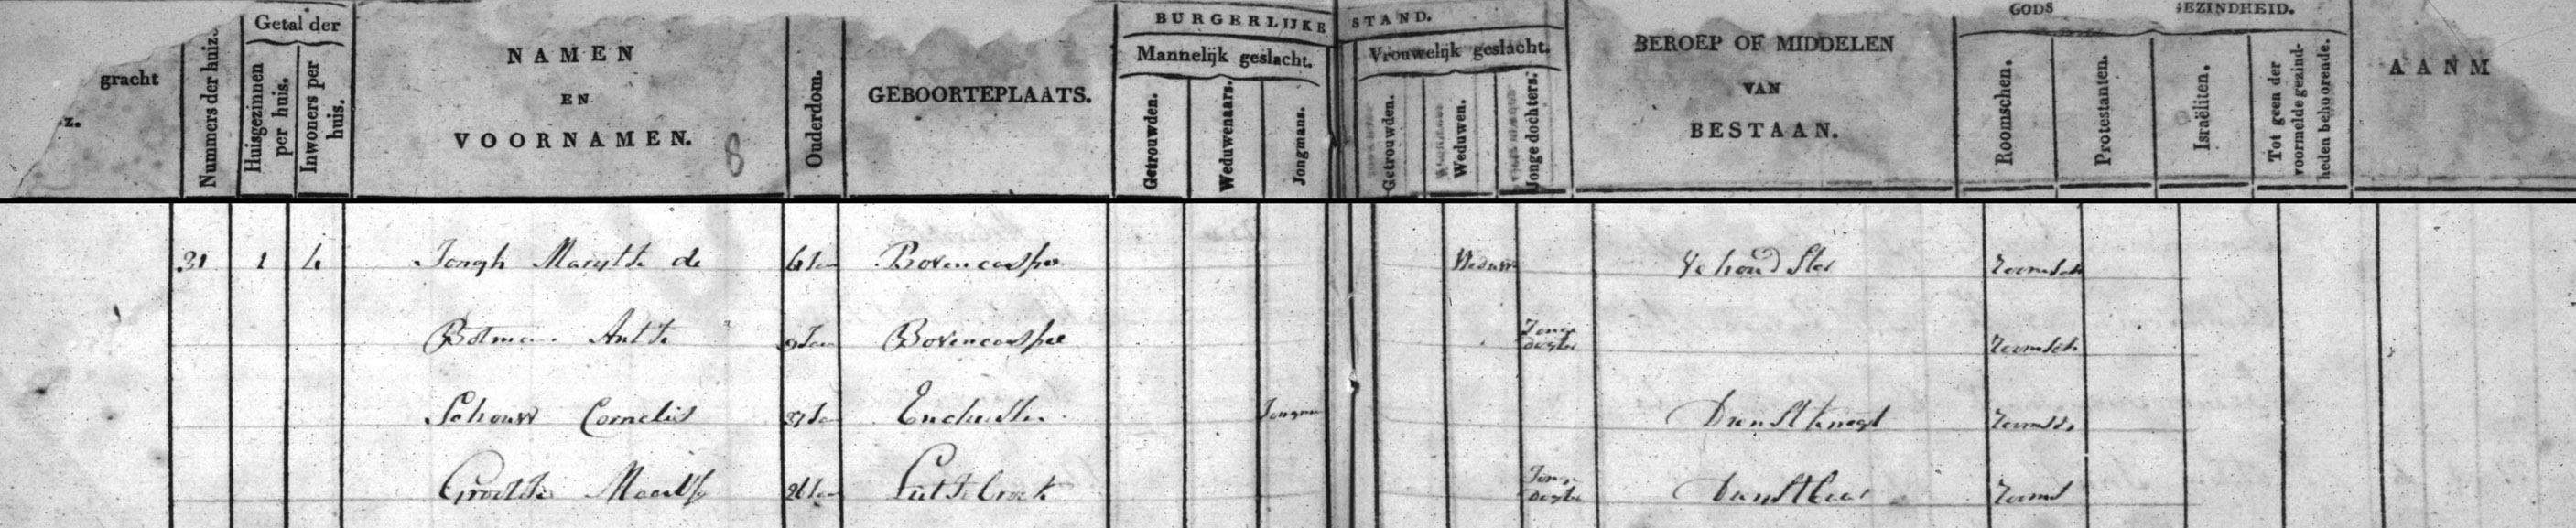 gracht
z.
Nummers der huiz.
Getal der
Huisgezinnen per huis.
Inwoners per huis.
NAMEN
EN
VOORNAMEN.
8
Ouderdom.
GEBOORTEPLAATS.
BURGERLIJKE STAND.
Mannelijk geslacht.
Getrouwden.
Weduwenaars.
Jongmans.
Vrouwelijk geslacht.
Getrouwden.
Weduwen.
Jonge dochters.
BEROEP OF MIDDELEN
VAN
BESTAAN.
GODS EZINDHEID.
Roomschen.
Protestanten.
Israëliten.
Tot geen der
voormelde gezind-
heden behoorende.
AANM
31 1 4 Jongh Marytte de Bovencarspe Weduw roomsch
Botman Antte Bovencarspel Jonge dogter roomsch
Schouw Cornelis 37 Jaa Enchuisen Jongman Dienstknegt
26 Jaa Lutte broek Jonge dogter